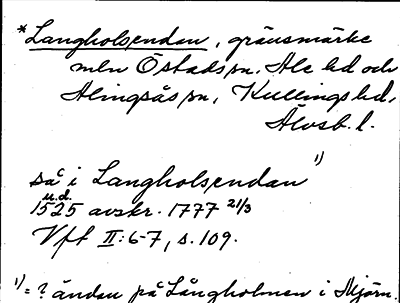 *Langholsendan, gränsmärke
mln Östads sn, Ale hd och
Alingsås sn, Kullings hd,
Älvsb. l.
så i Langholsendan 1)
u.d.
1525 avskr. 1777 21/3
Vff II:6-7, s. 109.
1) = ? ändan på Långholmen i Mjörn.